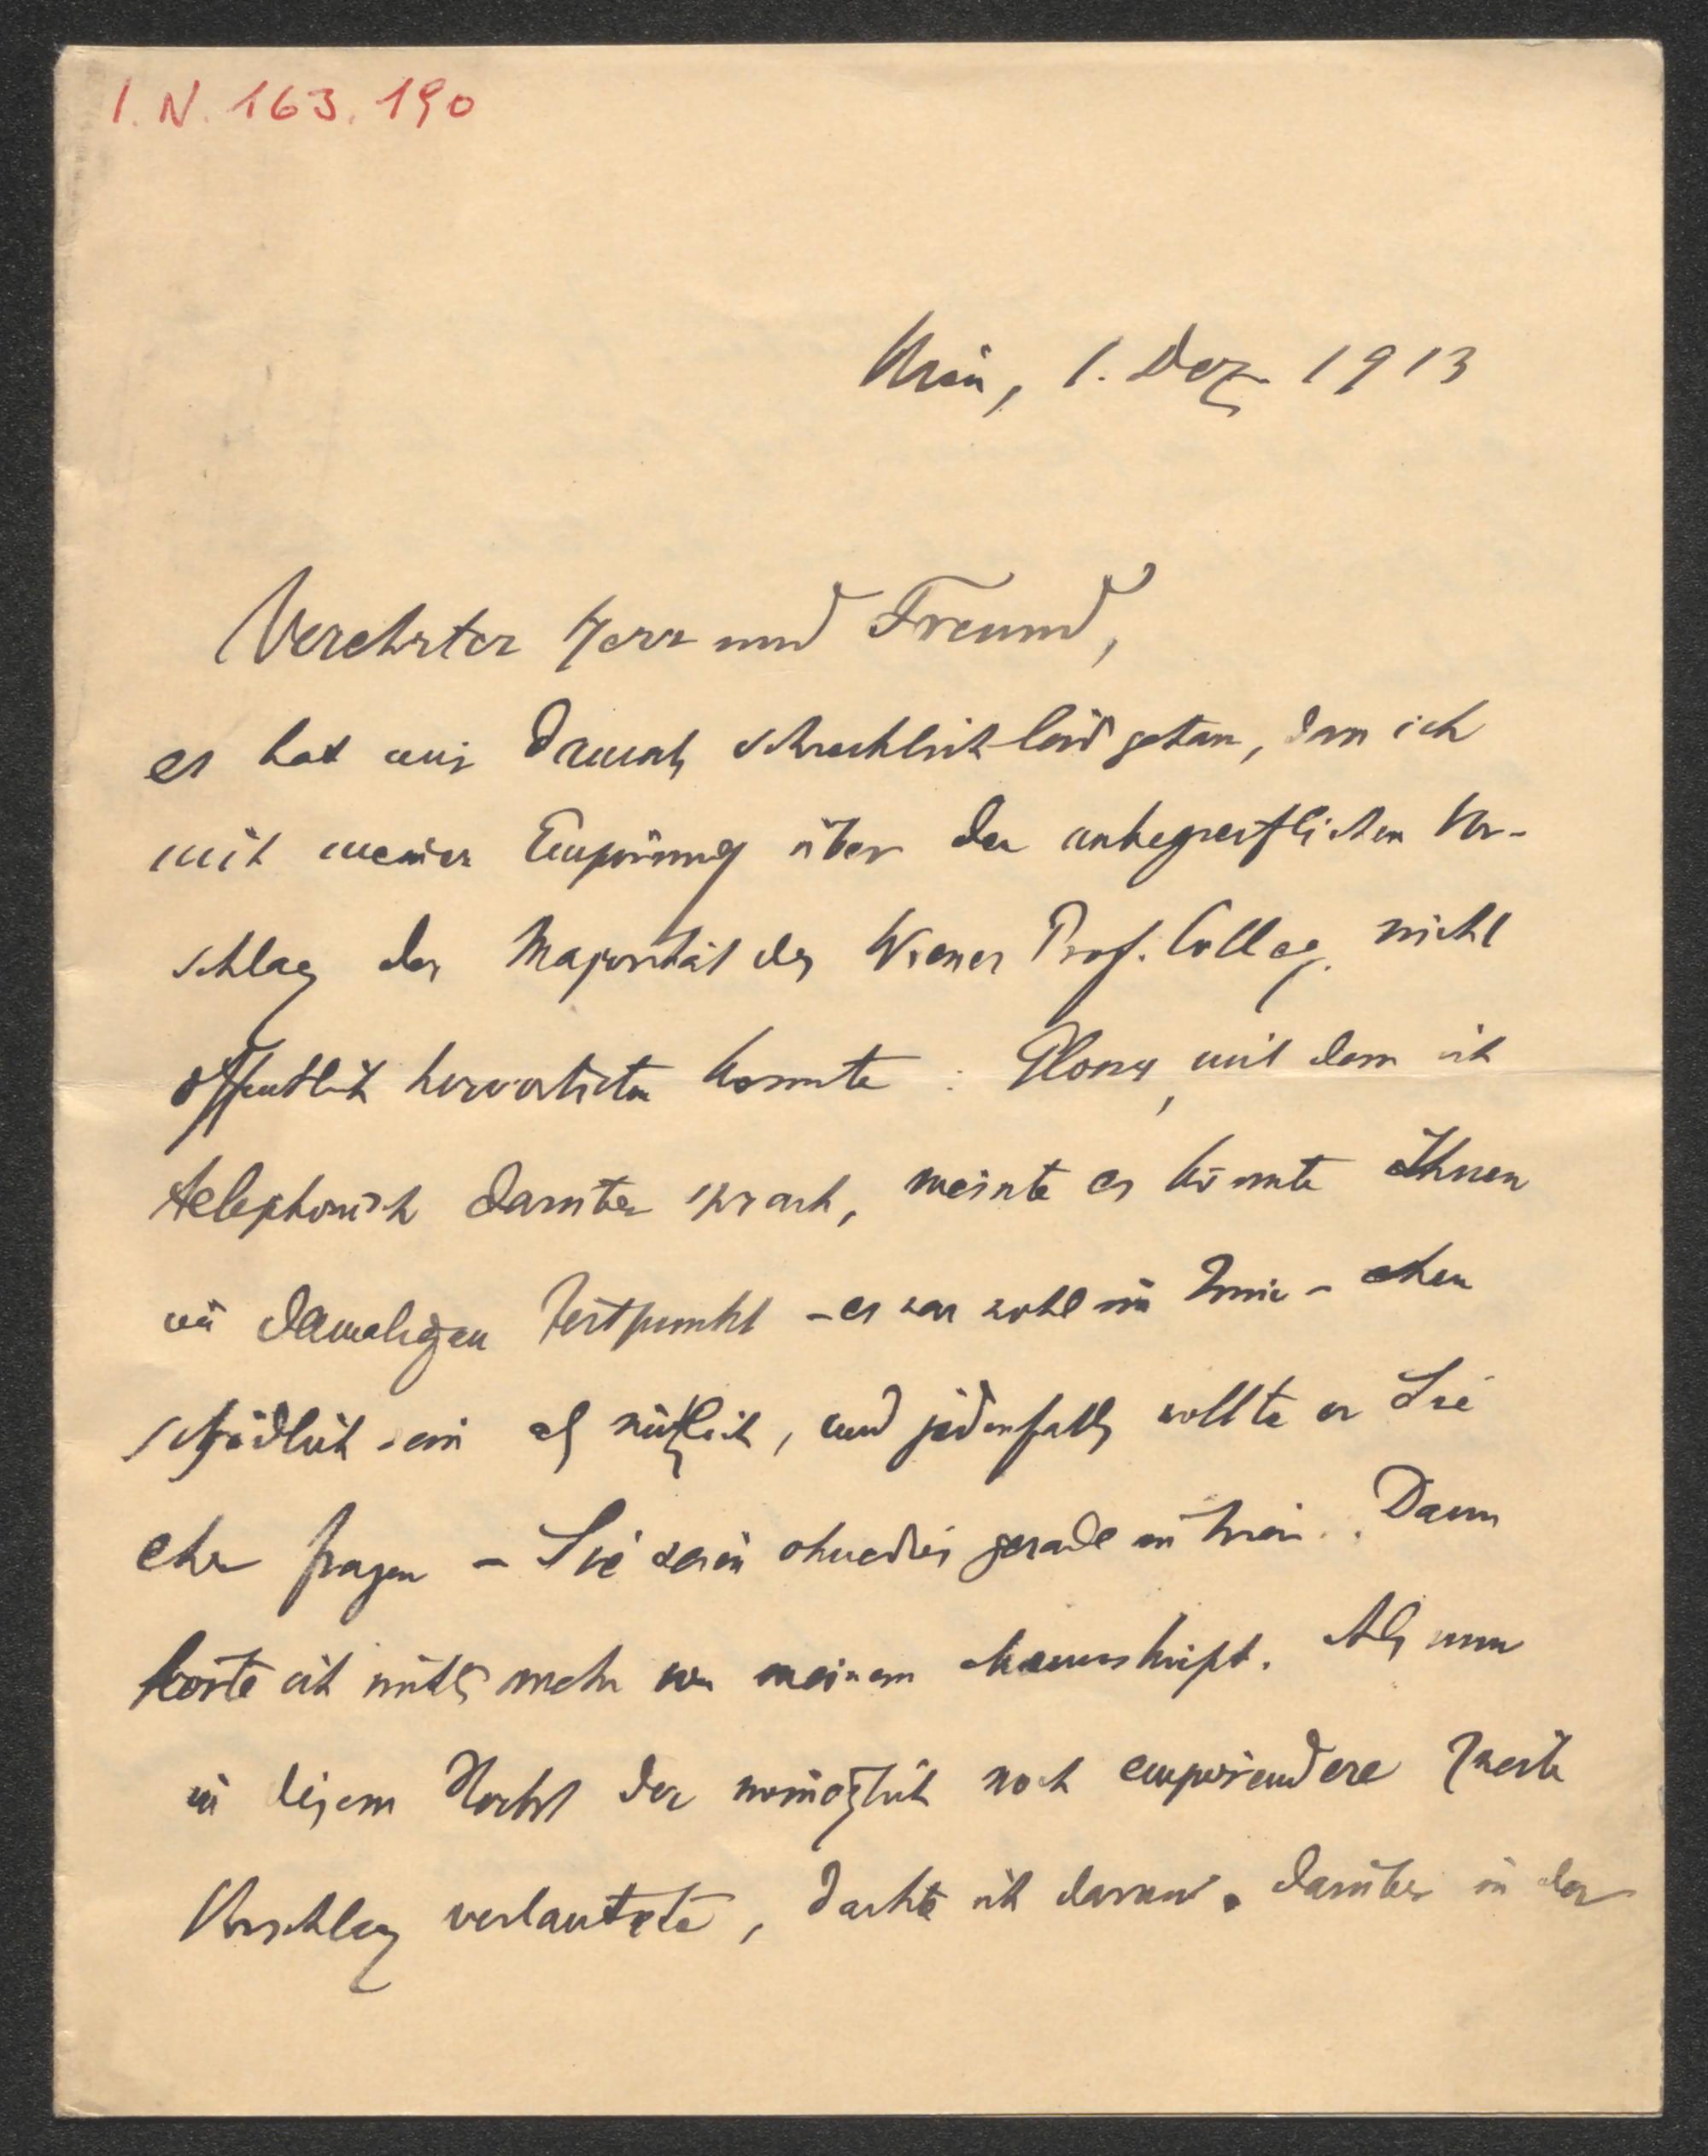 I.N. 163.190
Wien, 1. Dez. 1913
Verehrter Herr und Freund,
es hat mir damals schrecklich leid getan, dass ich
mit meiner Empörung über den unbegreiflichen Vor-
schlag der Majorität des Wiener Prof. Colleg. nicht
öffentlich hervortreten konnte: mit dem ich
telephonisch darüber sprach, meinte es könnte Ihnen
im damaligen Zeitpunkt – es war wohl im – eher
schädlich sein als nützlich, und jedenfalls wollte er Sie
eher fragen – Sie seien ohnedies gerade in Wien. Dann
hörte ich nichts mehr von meinem Manuskript. Als nun
in diesem Herbst der womöglich noch empörendere zweite
Vorschlag verlautete, dachte ich daran darüber in der